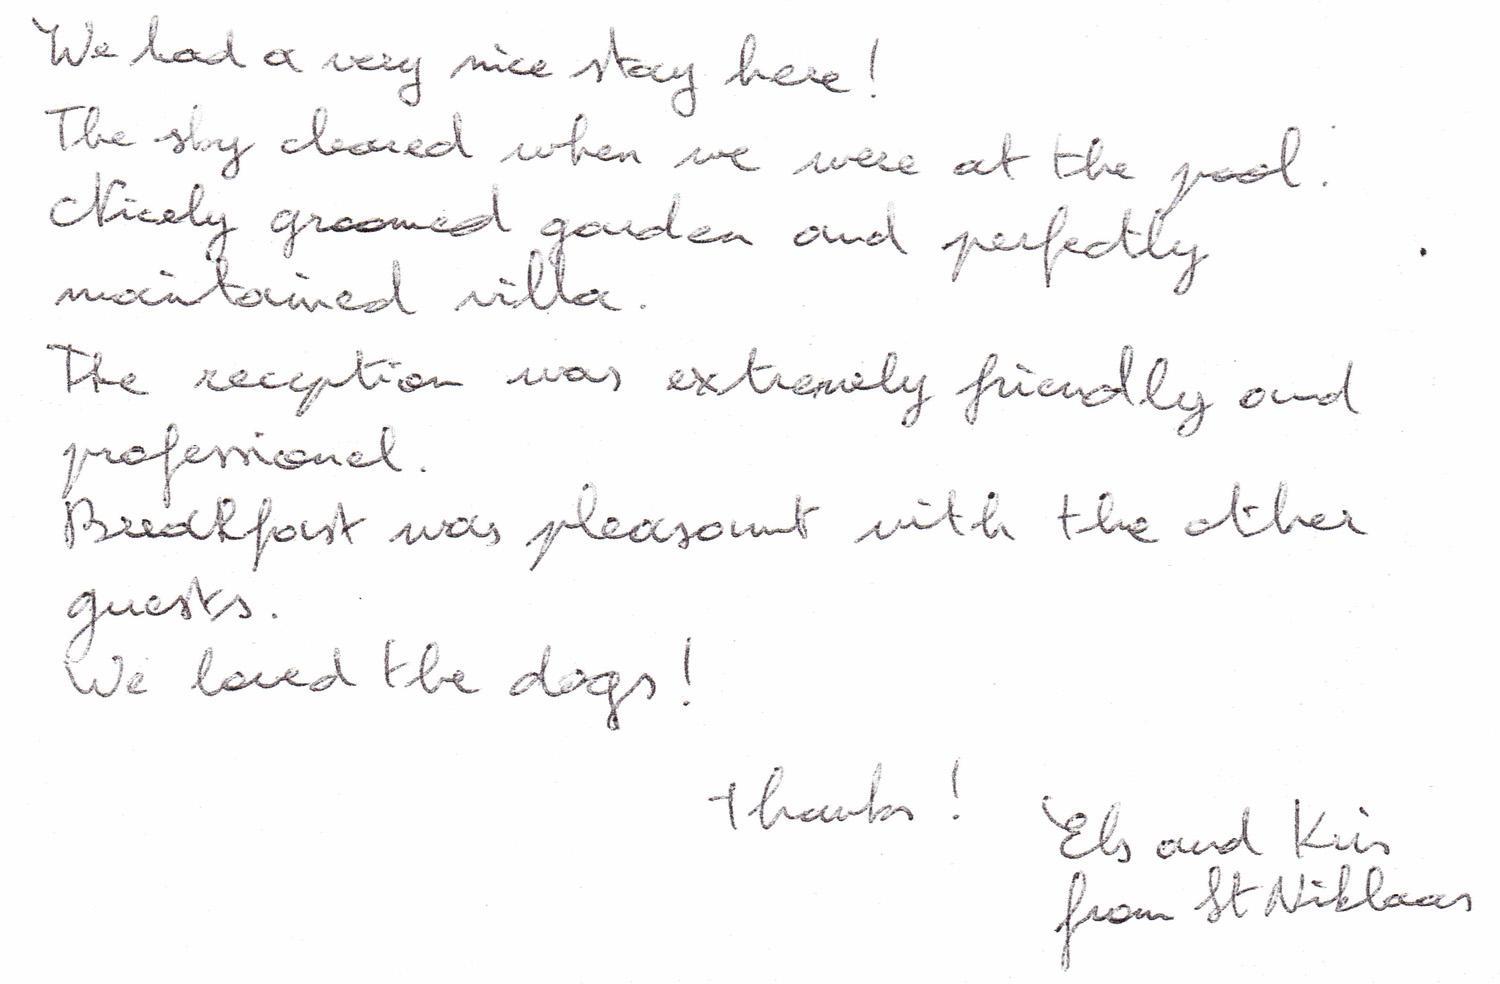 We had a very nice stay here!
The sky cleared when we were at the pool.
Nicely groomed garden and perfectly
maintained villa.
The reception was extremely friendly and
professional.
Breakfast was pleasant with the other
guests.
We loved the dogs!
thanks!
Els and Kris
from St Niklaas